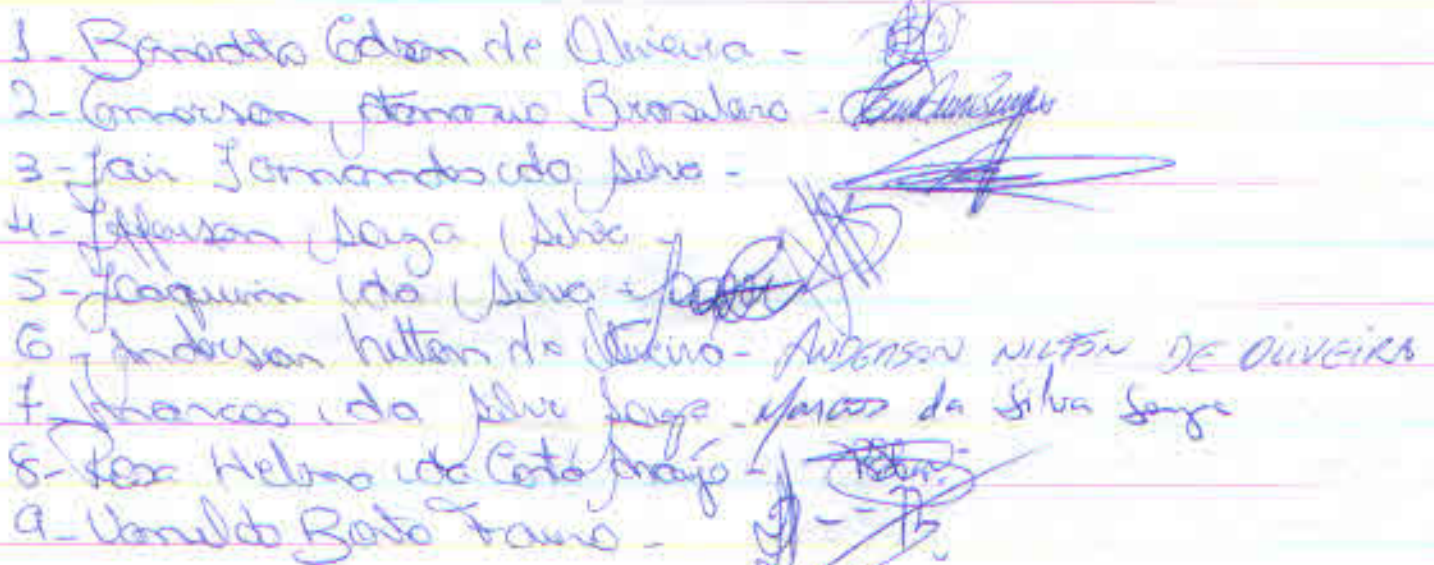 1- Benedito Edson de Oliveira -
2- Emerson Brasileiro -
3- Jair Fernandes da Silva -
4- Jefferson Souza Silva -
5- Joaquim da Silva -
6- Anderson Nilton de Oliveira - ANDERSON NILTON DE OLIVEIRA
7- Marcos da Silva Souza - Marcos da Silva Souza
8- Rosa Helena da Costa Araújo -
9- Vanildo Bato -